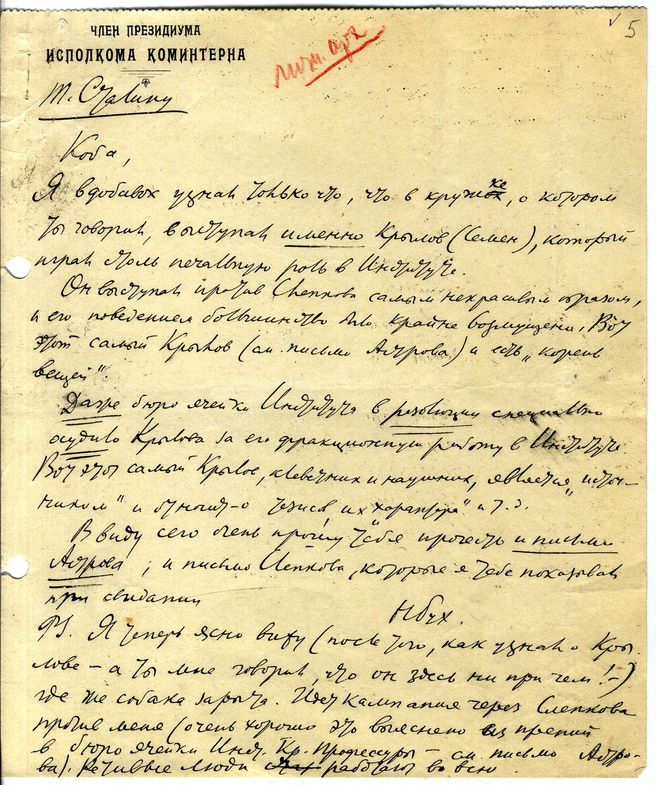 5
ЧЛЕН ПРЕЗИДИУМА
ИСПОЛКОМА КОМИНТЕРНА
Т. Сталину
Коба,
Я вдобавок узнал только что, что в кружке, о котором
ты говорил, выступал именно Крылов (Семен), который
играл столь печальную роль в Институте.
Он выступал против Слепкова самым некрасивым образом,
и его поведением большинство было крайне возмущено. Вот
этот самый Крылов (см. письмо Астрова) и есть „корень
вещей".
Даже бюро ячейки Института в резолюции специально
осудило Крылова за его фракционную работу в Институте
Вот этот самый Крылов, клеветник и наушник, является „источ-
ником" и относит-о тезисов их характера" и т. д.
В виду сего очень прошу тебя прочесть и письмо
Астрова, и письмо Слепкова, которые я тебе показывал
при свидании
Н Бух.
PS. Я теперь ясно вижу (после того, как узнал о Кры-
лове – а ты мне говорил, что он здесь ни при чем! –)
где же собака зарыта. Идет кампания через Слепкова
против меня (очень хорошо это выяснено из прений
в бюро ячейки Инст. Кр. Профессуры – см. письмо Астро-
ва). Ретивые люди работают во всю.